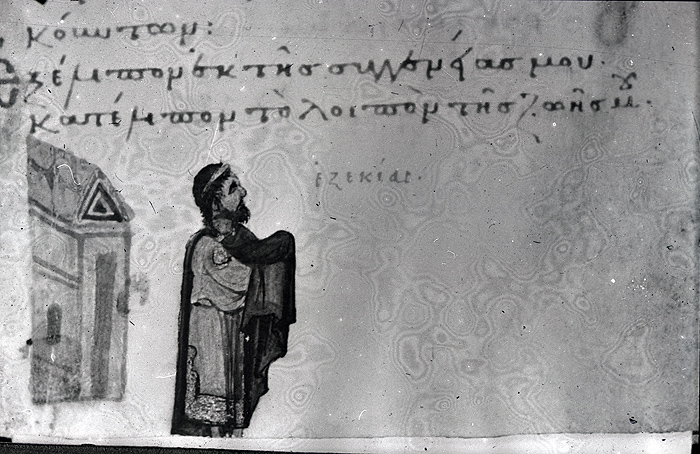 κούντων:
Ἐξέλιπον ἐκ τῆς συγγενείας μου·
κατέλιπον τὸ λοιπὸν τῆς ζωῆς μου·
ἐζεκίας·